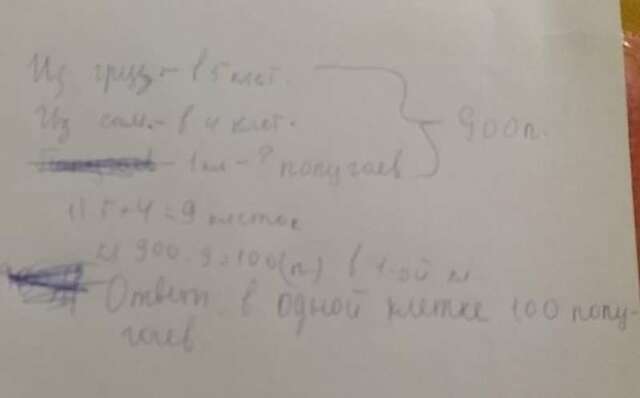 Из груз - в 5 клет.
Из сам. - в 4 клет. 900п.
1 кл - ? попугаев
1) 5+4=9 клеток
2) 900:9=100(п) в 1-ой к
Ответ в одной клетке 100 попу-
гаев